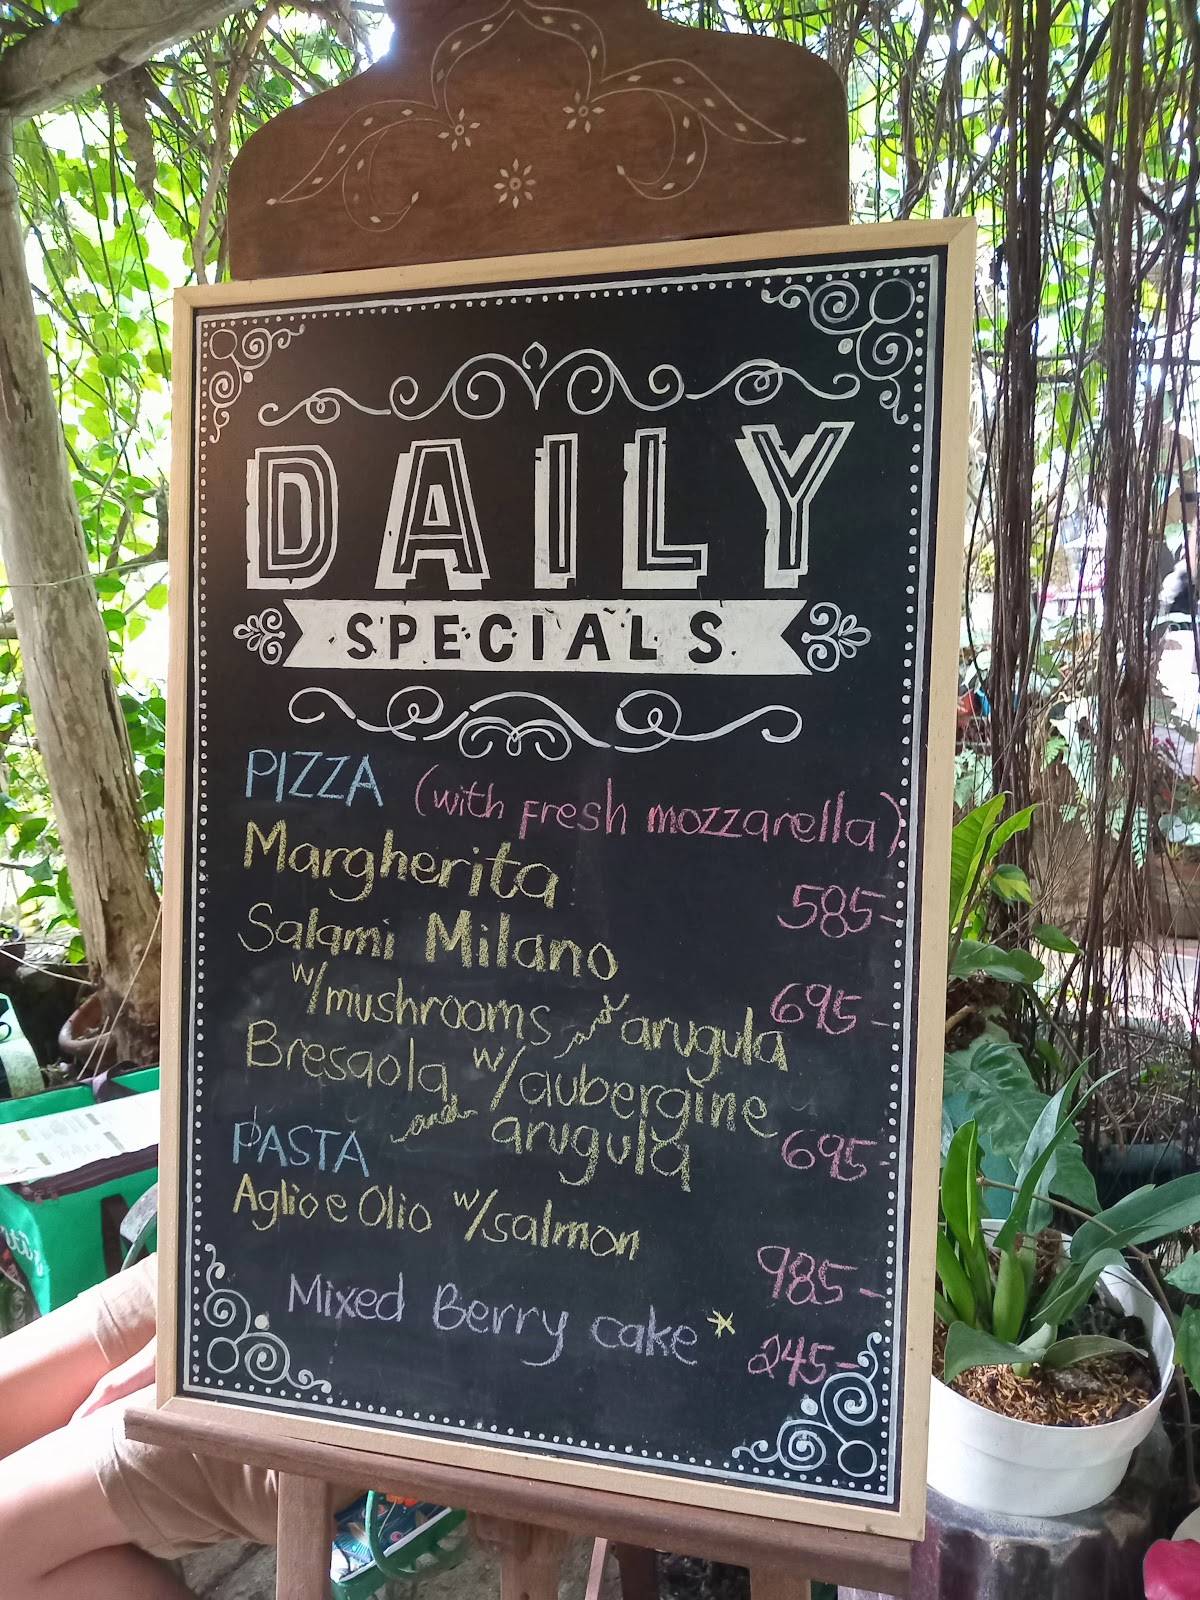 DAILY
SPECIALS
PIZZA (with fresh mozzarella)
Margherita 585-
Salami Milano
w/mushrooms & arugula 695-
Bresaola w/aubergine
and arugula 695-
PASTA
Aglio e Olio w/salmon 985-
Mixed Berry cake* 245-